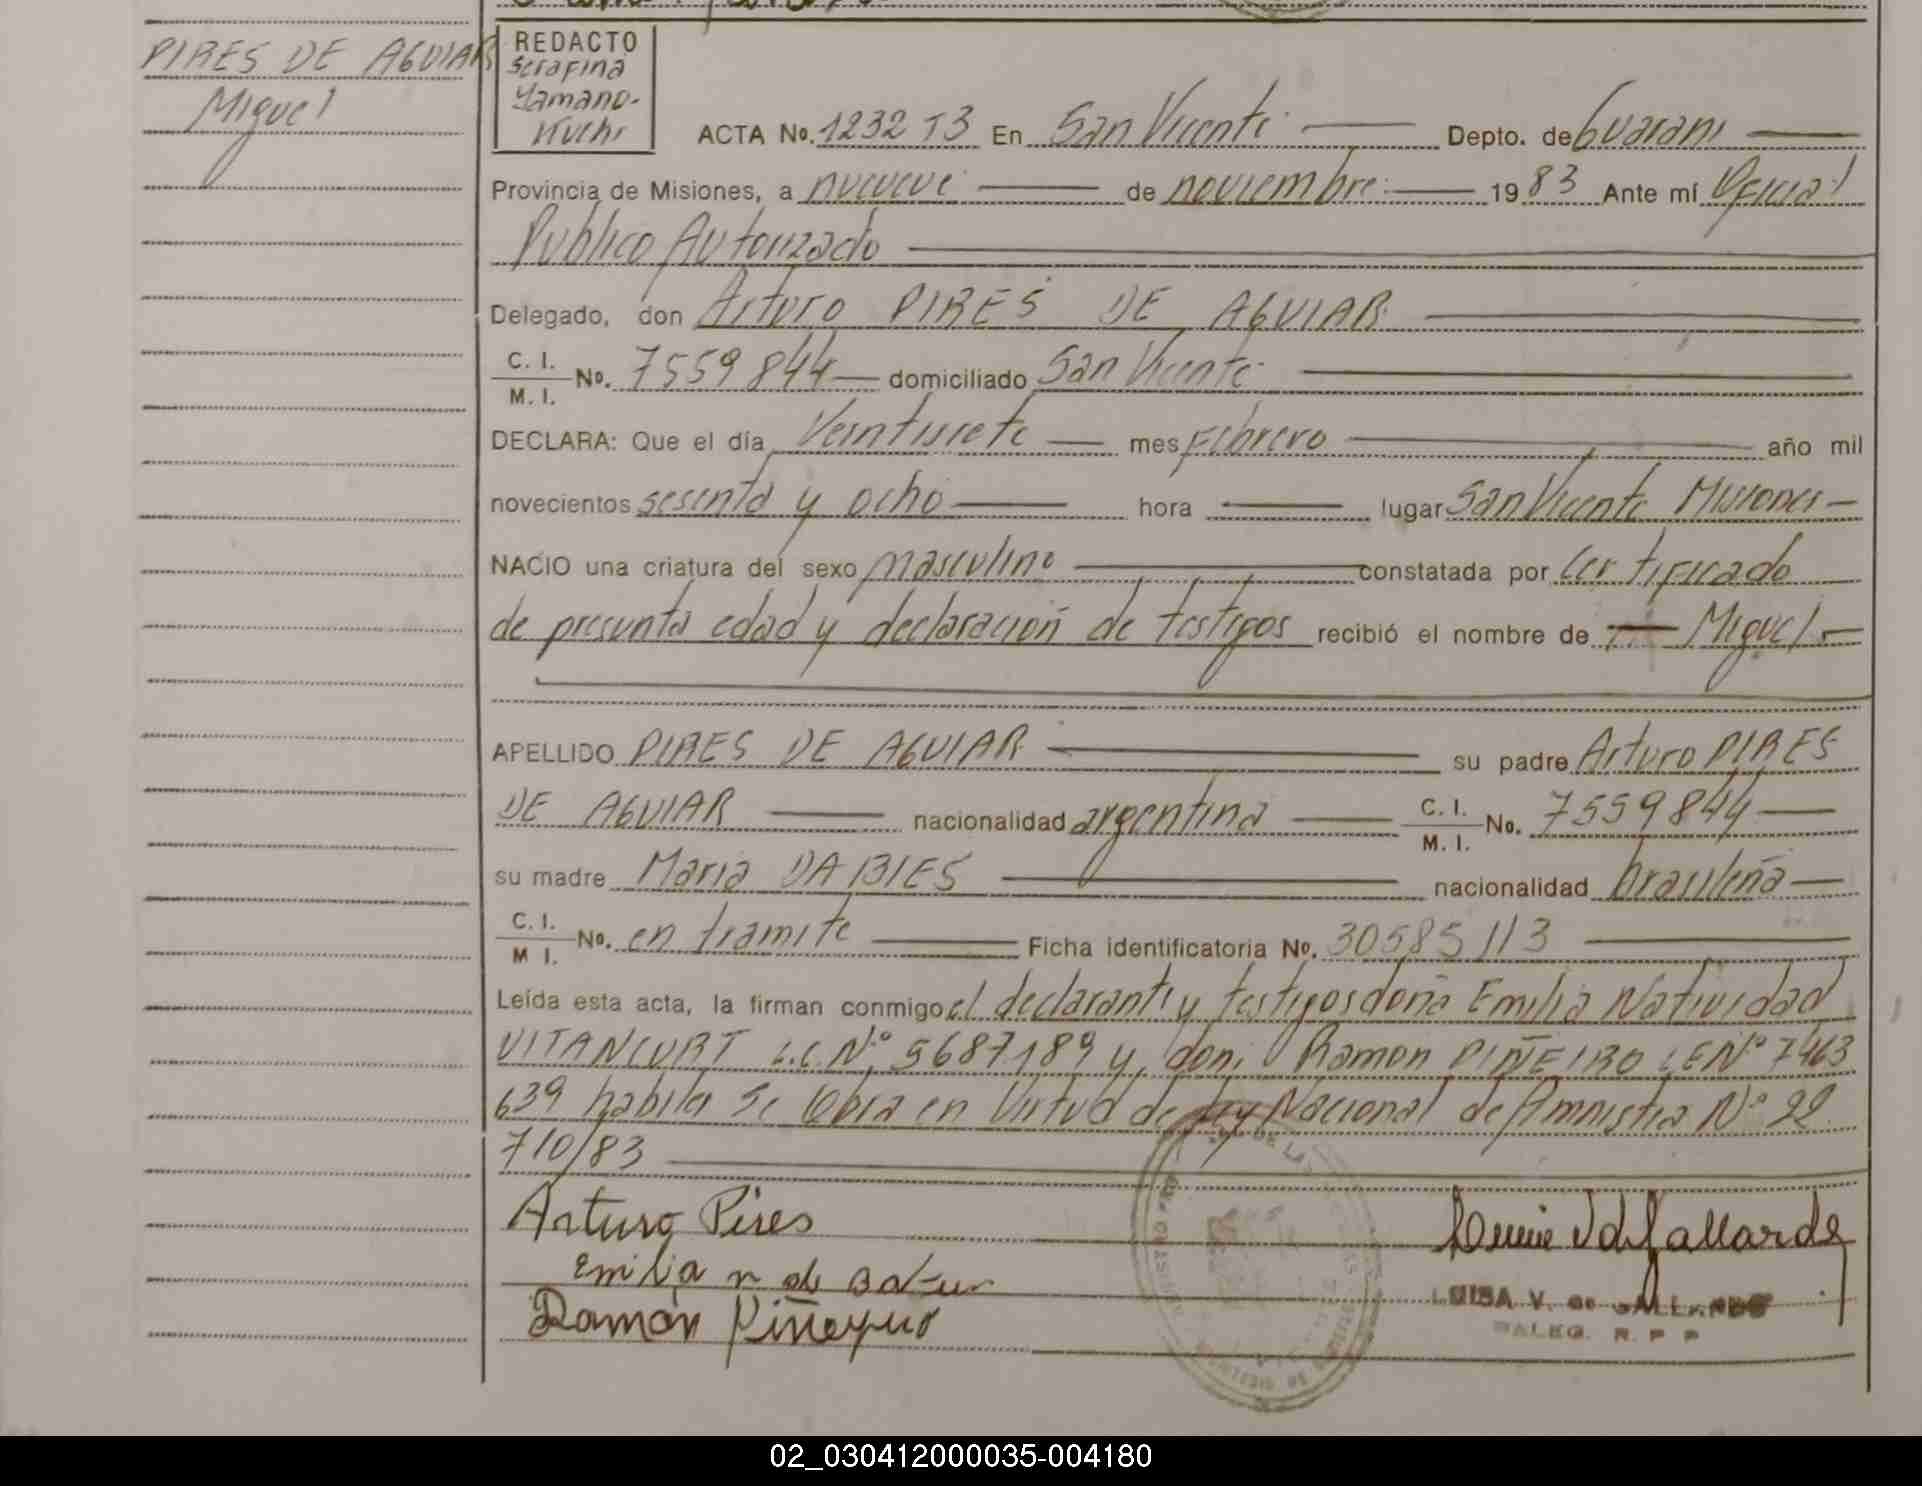 PIRES DE AGUIAR
Miguel
REDACTO
Serafina
Yamano-
Kuchi
ACTA No. 1232 T3 En San Vicente Depto. de Guarani
Provincia de Misiones, a nueveve de noviembre 1983 Ante mí Oficial
Publico Autorizado
Delegado, don Arturo PIRES DE AGUIAR
C. I.
M. I. No. 7559844 domiciliado San Vicente
DECLARA: Que el día Veintisiete mes Febrero año mil
novecientos sesenta y ocho hora lugar San Vicente Misiones
NACIO una criatura del sexo masculino constatada por Certificado
de presunta edad y declaración de testigos recibió el nombre de Miguel
APELLIDO PIRES DE AGUIAR su padre Arturo PIRES
DE AGUIAR nacionalidad argentina C. I. M. I. No. 7559844
su madre Maria DA BIES nacionalidad brasileña
C. I. M I. No. en tramite Ficha identificatoria No. 30585113
Leída esta acta, la firman conmigo el declarante y testigos doña Emilia Natividad
VITANCURT L.C. N° 5687189 y don Ramon PIÑEIRO LE N° 7463
639 habiles Se labra en Virtud de Ley Nacional de Amnistia N° 22
710/83
Arturo Pires
Emilia n de
Ramón Piñeyro
LUISA V. de GALLARDO
DALEG. R. P P
02_030412000035-004180